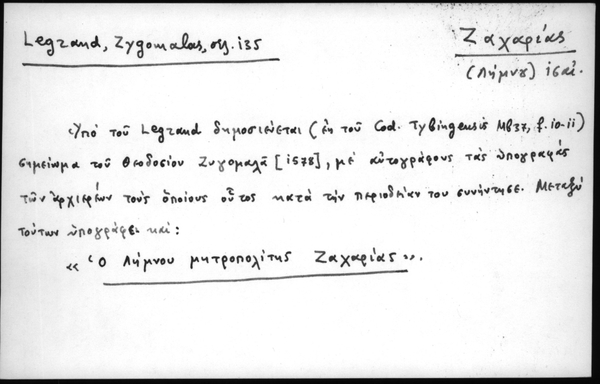 Legrand, Zygomalas, σελ. 135
Ζαχαρίας
(Λήμνου) 16 αἰ.
Ὑπό τοῦ Legrand δημοσιεύεται (ἐκ τοῦ Cod. Tybingensis Mb 37, f. 10-11)
σημείωμα τοῦ Θεοδοσίου Ζυγομαλᾶ [1578], μέ αὐτογράφους τάς ὑπογραφάς
τῶν ἀρχιερέων τούς ὁποίους οὗτος κατά τήν περιοδείαν του συνήντησε. Μεταξύ
τούτων ὑπογράφει καί:
«Ὁ Λήμνου μητροπολίτης Ζαχαρίας».